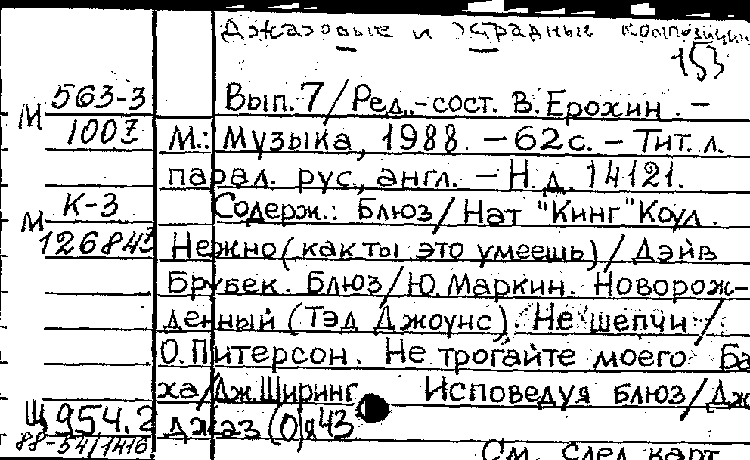 Джазовые и эстрадные композиции
153
М 563-3
1007
Вып. 7/Ред.-сост. В.Ерохин. –
М.: Музыка, 1988. – 62с. – Тит. л.
парал. рус., англ. – Н.д. 14121.
М К-3
126843
Содерж.: Блюз/Нат "Кинг" Коул.
Нежно (как ты это умеешь)/Дэйв
Брубек. Блюз/Ю.Маркин. Новорож-
денный (Тэд Джоунс). Не шепчи/
О.Питерсон. Не трогайте моего Ба
ха/Дж.Ширинг Исповедуя блюз/Дж
Щ 954.2
джаз (0)я43
88-54/1416
См. след карт